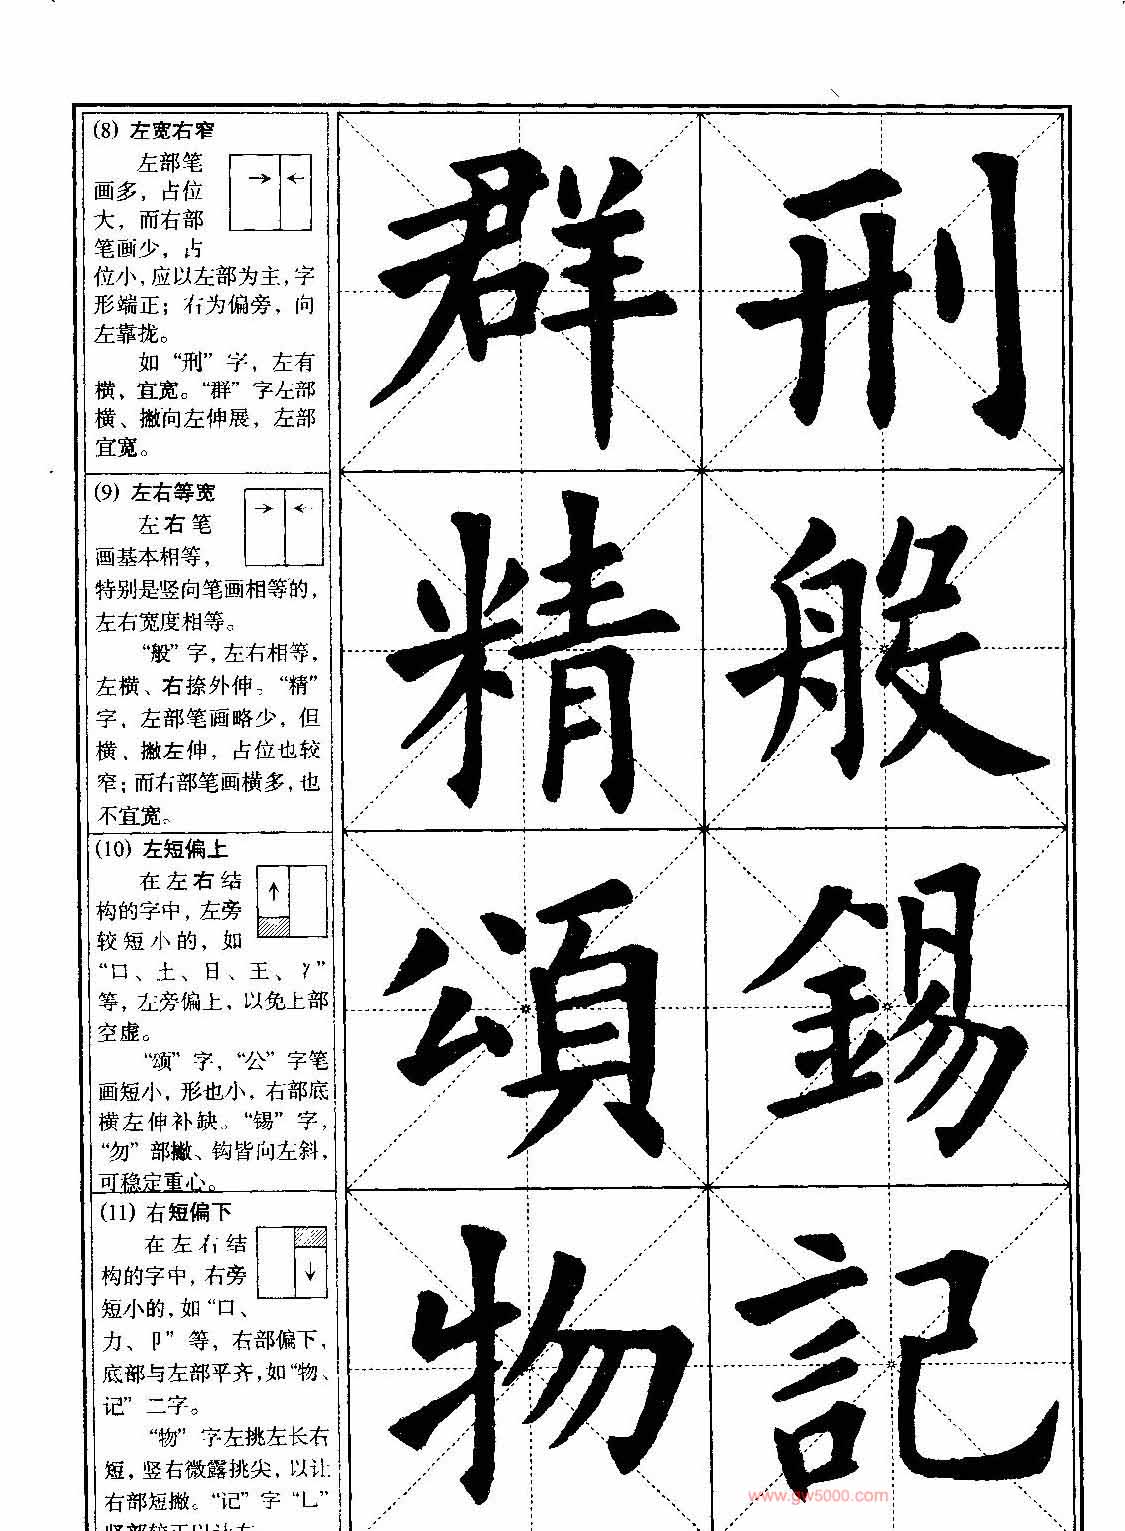 (8) 左宽右窄
左部笔
画多，占位
大，而右部
笔画少，占
位小，应以左部为主，字
形端正；右为偏旁，向
左靠拢。
如“刑”字，左有
横，宜宽。“群”字左部
横、撇向左伸展，左部
宜宽。
群 刑
(9) 左右等宽
左右笔
画基本相等，
特别是竖向笔画相等的，
左右宽度相等。
“般”字，左右相等，
左横、右捺外伸。“精”
字，左部笔画略少，但
横、撇左伸，占位也较
窄；而右部笔画横多，也
不宜宽。
精 般
(10) 左短偏上
在左右结
构的字中，左旁
较短小的，如
“口、土、日、王、冫”
等，左旁偏上，以免上部
空虚。
“颂”字，“公”字笔
画短小，形也小，右部底
横左伸补缺。“锡”字，
“勿”部撇、钩皆向左斜，
可稳定重心。
頌 錫
(11) 右短偏下
在左右结
构的字中，右旁
短小的，如“口、
力、卩”等，右部偏下，
底部与左部平齐，如“物、
记”二字。
“物”字左挑左长右
短，竖右微露挑尖，以让
右部短撇。“记”字“乚”
物 記
www.gw5000.com